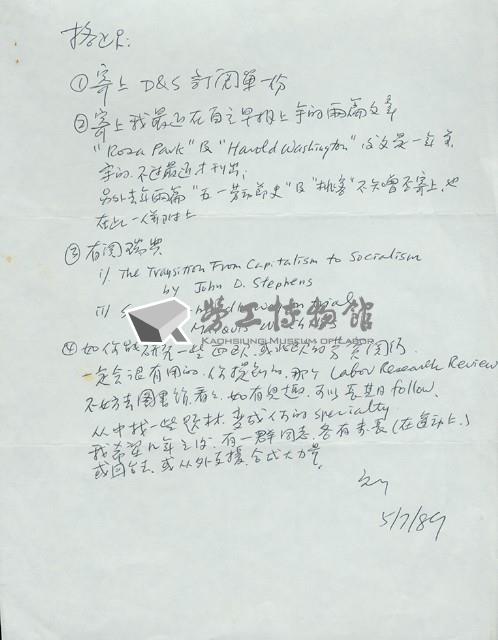 ① 寄上 D&S 訂閱單一份
② 寄上我最近在自立早報上寫的兩篇文章
"Rosa Park" 及 "Harold Washington" 該文是一年前
寫的. 不過最近才刊出;
另外去年兩篇 "五一勞動節史" 及 "挑客" 不知曾否寄上, 也
在此一併附上
③ 有關瑞典
i) The Transition From Capitalism to Socialism
by John D. Stephens
ii) S
勞工博物館
KAOHSIUNG MUSEUM OF LABOR
④ 如你能研究一些西歐, 或北歐的勞資關係
一定會很有用的. 你提到的, 那個 Labor Research Review
不妨去圖書館看看, 如有興趣. 可以長期 follow.
從中找一些題材, 當成你的 specialty
我希望幾年之後, 有一群同志, 各有專長 (在運動上.)
或回台去, 或從外支援, 合成大力量.
5/7/89